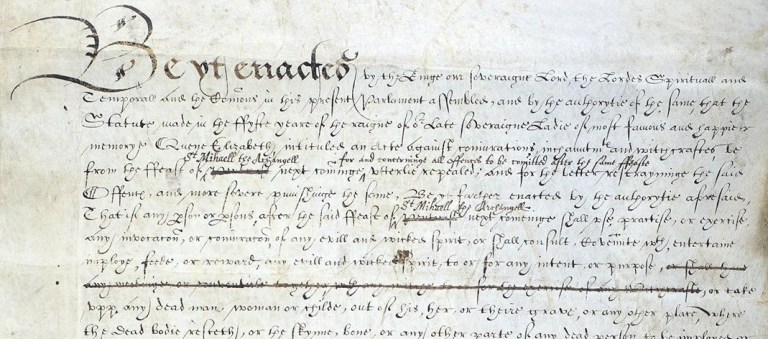 Be yt enacted by the Kinge our Soveraigne Lord, the Lordes Spirituall and
Temporall and the Comons in this present Parlament assembled, and by the authoritie of the same, that the
Statute made in the ffyfte yeare of the raigne of or late Soveraigne Ladie of most famous and happie
memorye Quene Elizabeth, intituled an Acte against coniurations, inchauntmts and witchcrafts be
St Mihaell the Archangell for and concerninge all offences to be comitted after the same ffeaste
from the ffeast of next cominge utterlie repealed; and for the better restrayninge the said
Offences, and more severe punishinge the same, Be yt further enacted by the authoritie aforesaid,
St Mihaell the Archangell
That if any pson or psons after the said ffeast of next cominge shall use, practise, or exercise
any invocacon, or coniuracon of any evill and wicked spirit, or shall consult, covennte wth, entertaine
imploye, feede, or reward, any evill and wicked spirit, to or for any intent, or purpose, or shall
or take
upp any dead man, woman or childe, out of his, her, or theire grave, or any other place, where
the dead bodie resteth, or the skynne, bone, or any other parte of any dead person, to be imployed or